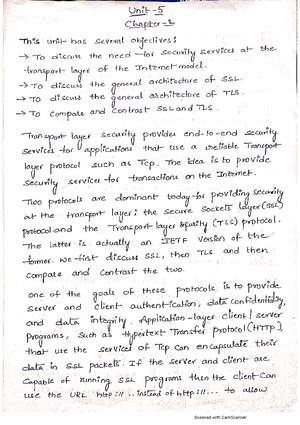 Unit-5
Chapter-2
This unit has several objectives:
→ To discuss the need for security services at the
transport layer of the Internet model.
→ To discuss the general architecture of SSL.
→ To discuss the general architecture of TLS.
→ To compare and contrast SSL and TLS.
Transport layer security provides end-to-end security
services for applications that use a reliable Transport
layer protocol such as Tcp. The idea is to provide
security services for transactions on the Internet.
Two protocols are dominant today for providing security
at the transport layer: the secure Sockets layer (SSL)
protocol and the Transport layer Security (TLS) protocol.
The latter is actually an IETF version of the
former. we first discuss SSL, then TLS and then
compare and contrast the two.
one of the goals of these protocols is to provide
server and client authentication, data confidentiality,
and data integrity. Application-layer client/server
programs, such as Hypertext Transfer protocol (HTTP),
that use the services of Tcp can encapsulate their
data in SSL packets. If the server and client are
capable of running SSL programs then the client can
use the URL http:// .. instead of http://... to allow
Scanned with CamScanner